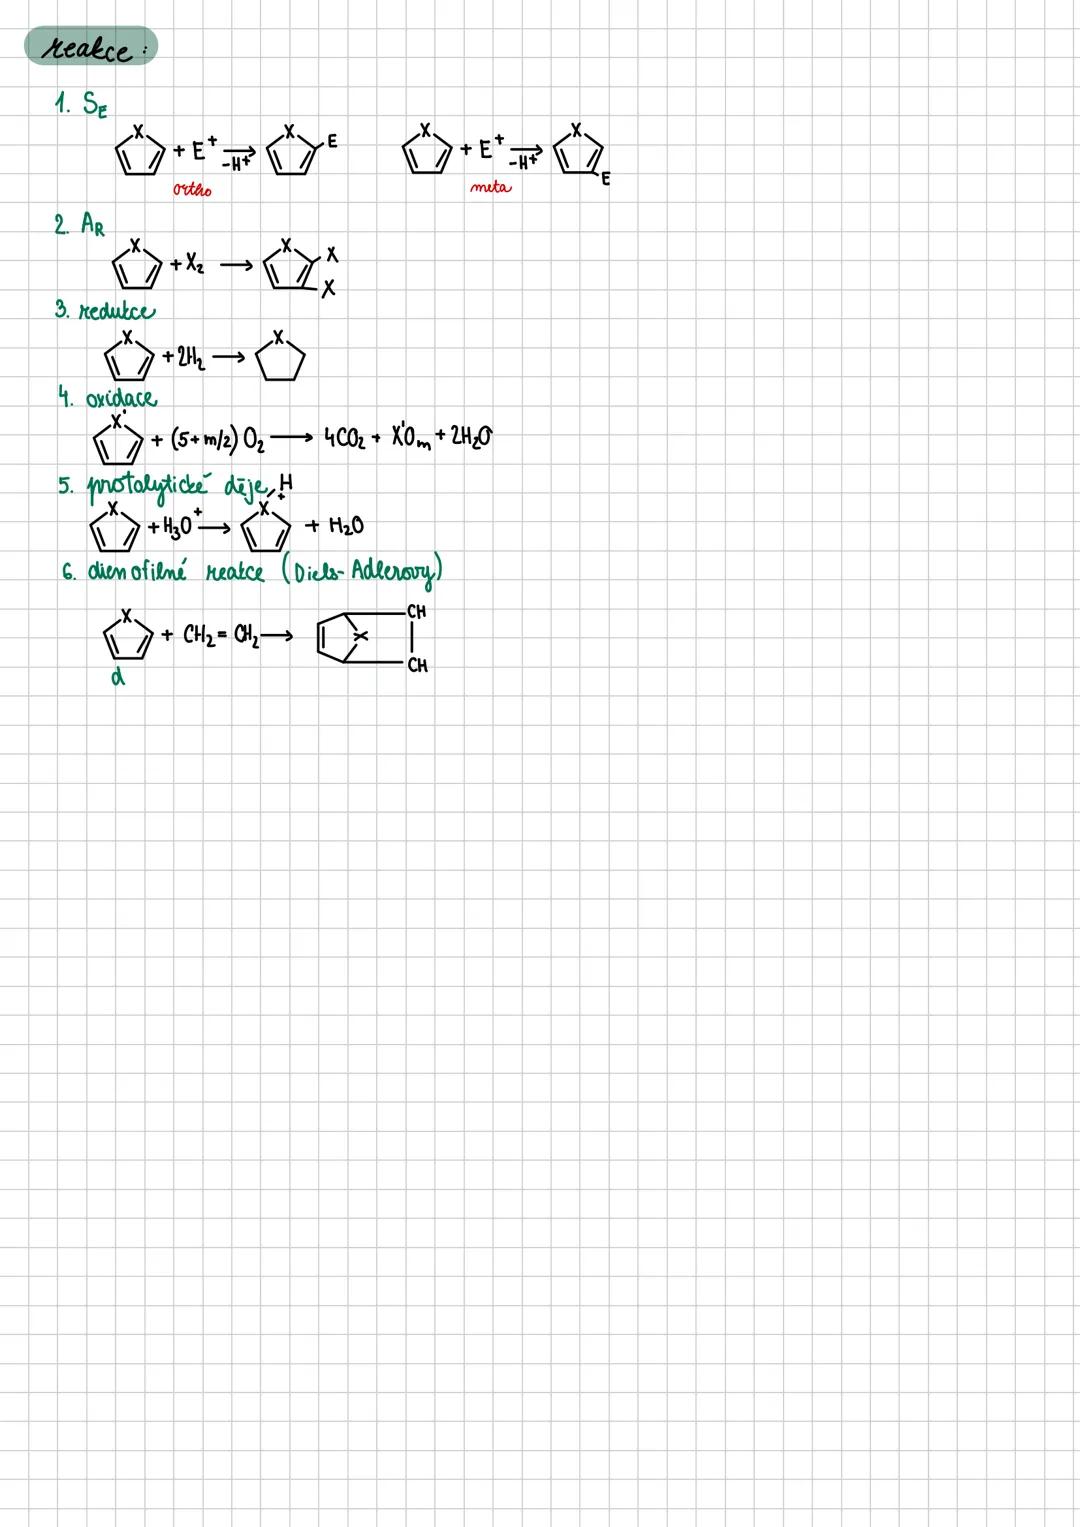 reakce:
1. SE
X + E⁺ → X E X + E⁺ → X E
-H⁺ -H⁺
ortho meta
2. AR
X + X₂ → X X X
3. redukce
X + 2H₂ → X
4. oxidace
X' + (5+m/2) O₂ → 4CO₂ + X'Oₘ + 2H₂O
5. protolytické děje
X + H₃O⁺ → X⁺ H + H₂O
6. dienofilné reakce (Diels-Adlerovy)
X + CH₂ = CH₂ → X CH CH
d